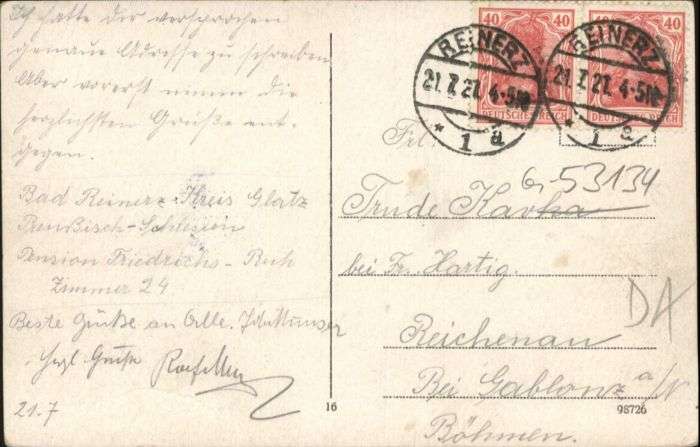 Ich hatte dir versprochen
genaue Adresse zu schreiben
Aber vorerst nimm die
herzlichsten Grüße ent-
gegen.
Bad Reinerz Kreis Glatz
Preußisch-Schlesien
Pension Friedrichs-Ruh
Zimmer 24
Beste Grüße an Alle.
Herzl Grüße
21.7
16
40 40
40 40
DEUTSCHES REICH
DEUTSCHES REICH
REINERZ
21.7.21.4-5N
* 1 a
REINERZ
21.7.21.4-5N
* 1 a
Frl.
53134
Trude Kavka
bei Fr. Hartig.
Reichenau
Bei Gablonz a/N
Böhmen.
98726